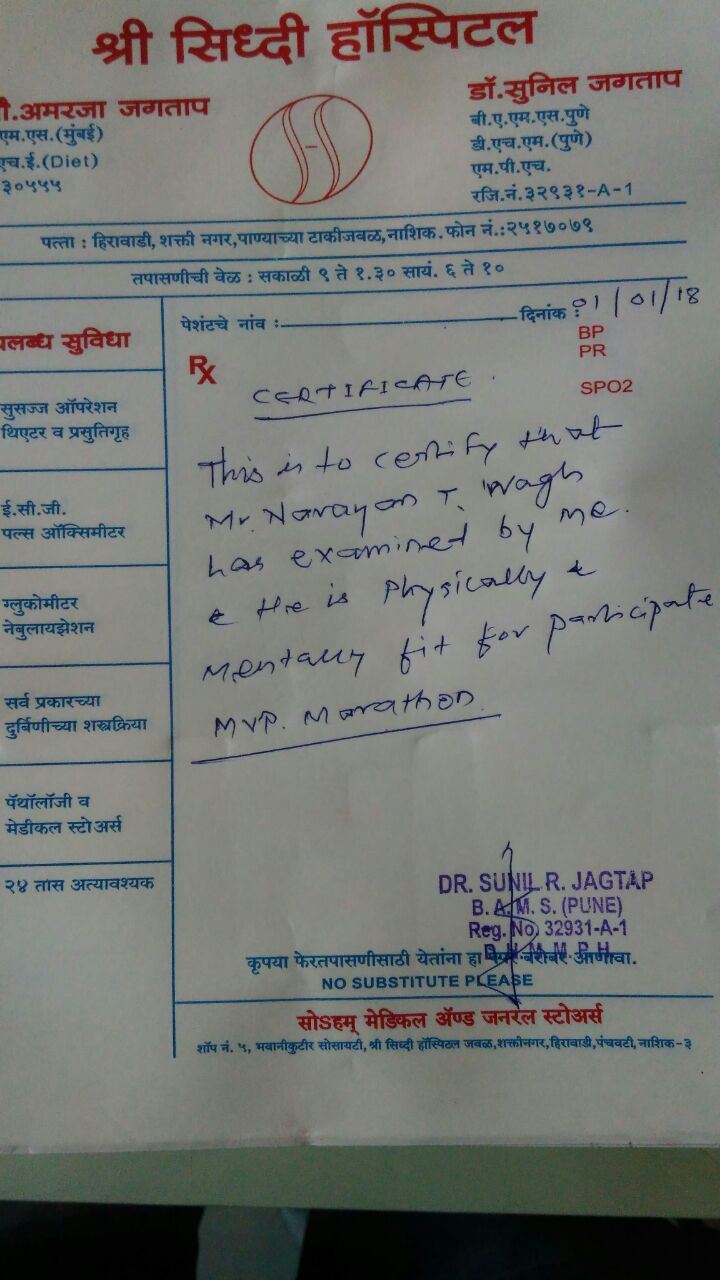 श्री सिध्दी हॉस्पिटल
.अमरजा जगताप
एम.एस.(मुंबई)
एच.ई.(Diet)
३०५५५
डॉ.सुनिल जगताप
बी.ए.एम.एस.पुणे
डी.एच.एम.(पुणे)
एम.पी.एच.
रजि.नं.३२९३१-A-1
पत्ता : हिरावाडी, शक्ती नगर,पाण्याच्या टाकीजवळ,नाशिक. फोन नं.:२५१७०७९
तपासणीची वेळ : सकाळी ९ ते १.३० सायं. ६ ते १०
पेशंटचे नांव :
दिनांक : 01/01/18
BP
PR
SPO2
Rx
CERTIFICATE.
This is to certify that
Mr. Narayan T. Wagh
has examined by me.
& He is Physically &
Mentally fit for participate
MVP. Marathon.
लब्ध सुविधा
सुसज्ज ऑपरेशन
थिएटर व प्रसुतिगृह
ई.सी.जी.
पल्स ऑक्सिमीटर
ग्लुकोमीटर
नेबुलायझेशन
सर्व प्रकारच्या
दुर्बिणीच्या शस्त्रक्रिया
पॅथॉलॉजी व
मेडीकल स्टोअर्स
२४ तास अत्यावश्यक
DR. SUNIL R. JAGTAP
B. A. M. S. (PUNE)
Reg. No. 32931-A-1
D. H. M. M. P. H.
कृपया फेरतपासणीसाठी येतांना हा पेपर बरोबर आणावा.
NO SUBSTITUTE PLEASE
सोऽहम् मेडिकल ॲण्ड जनरल स्टोअर्स
शॉप नं. ५, भवानीकुटीर सोसायटी, श्री सिध्दी हॉस्पिटल जवळ,शक्तीनगर,हिरावाडी,पंचवटी, नाशिक-३